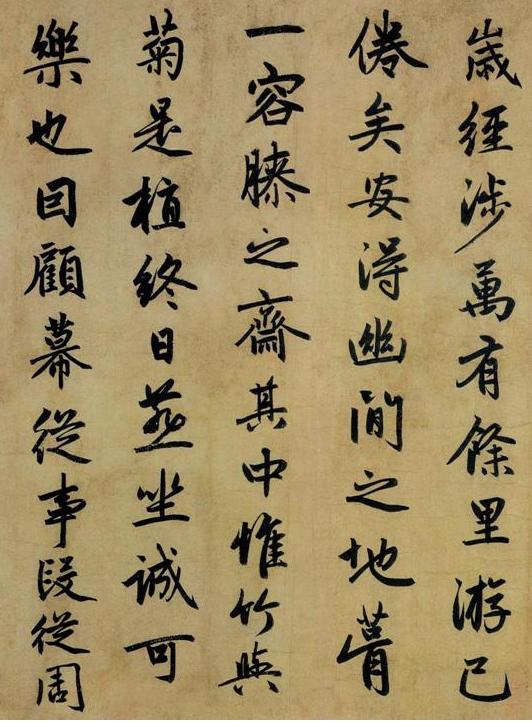 歲經涉萬有餘里游已
倦矣安得幽閒之地營
一容膝之齋其中惟竹與
菊是植終日燕坐誠可
樂也因顧幕從事段從周